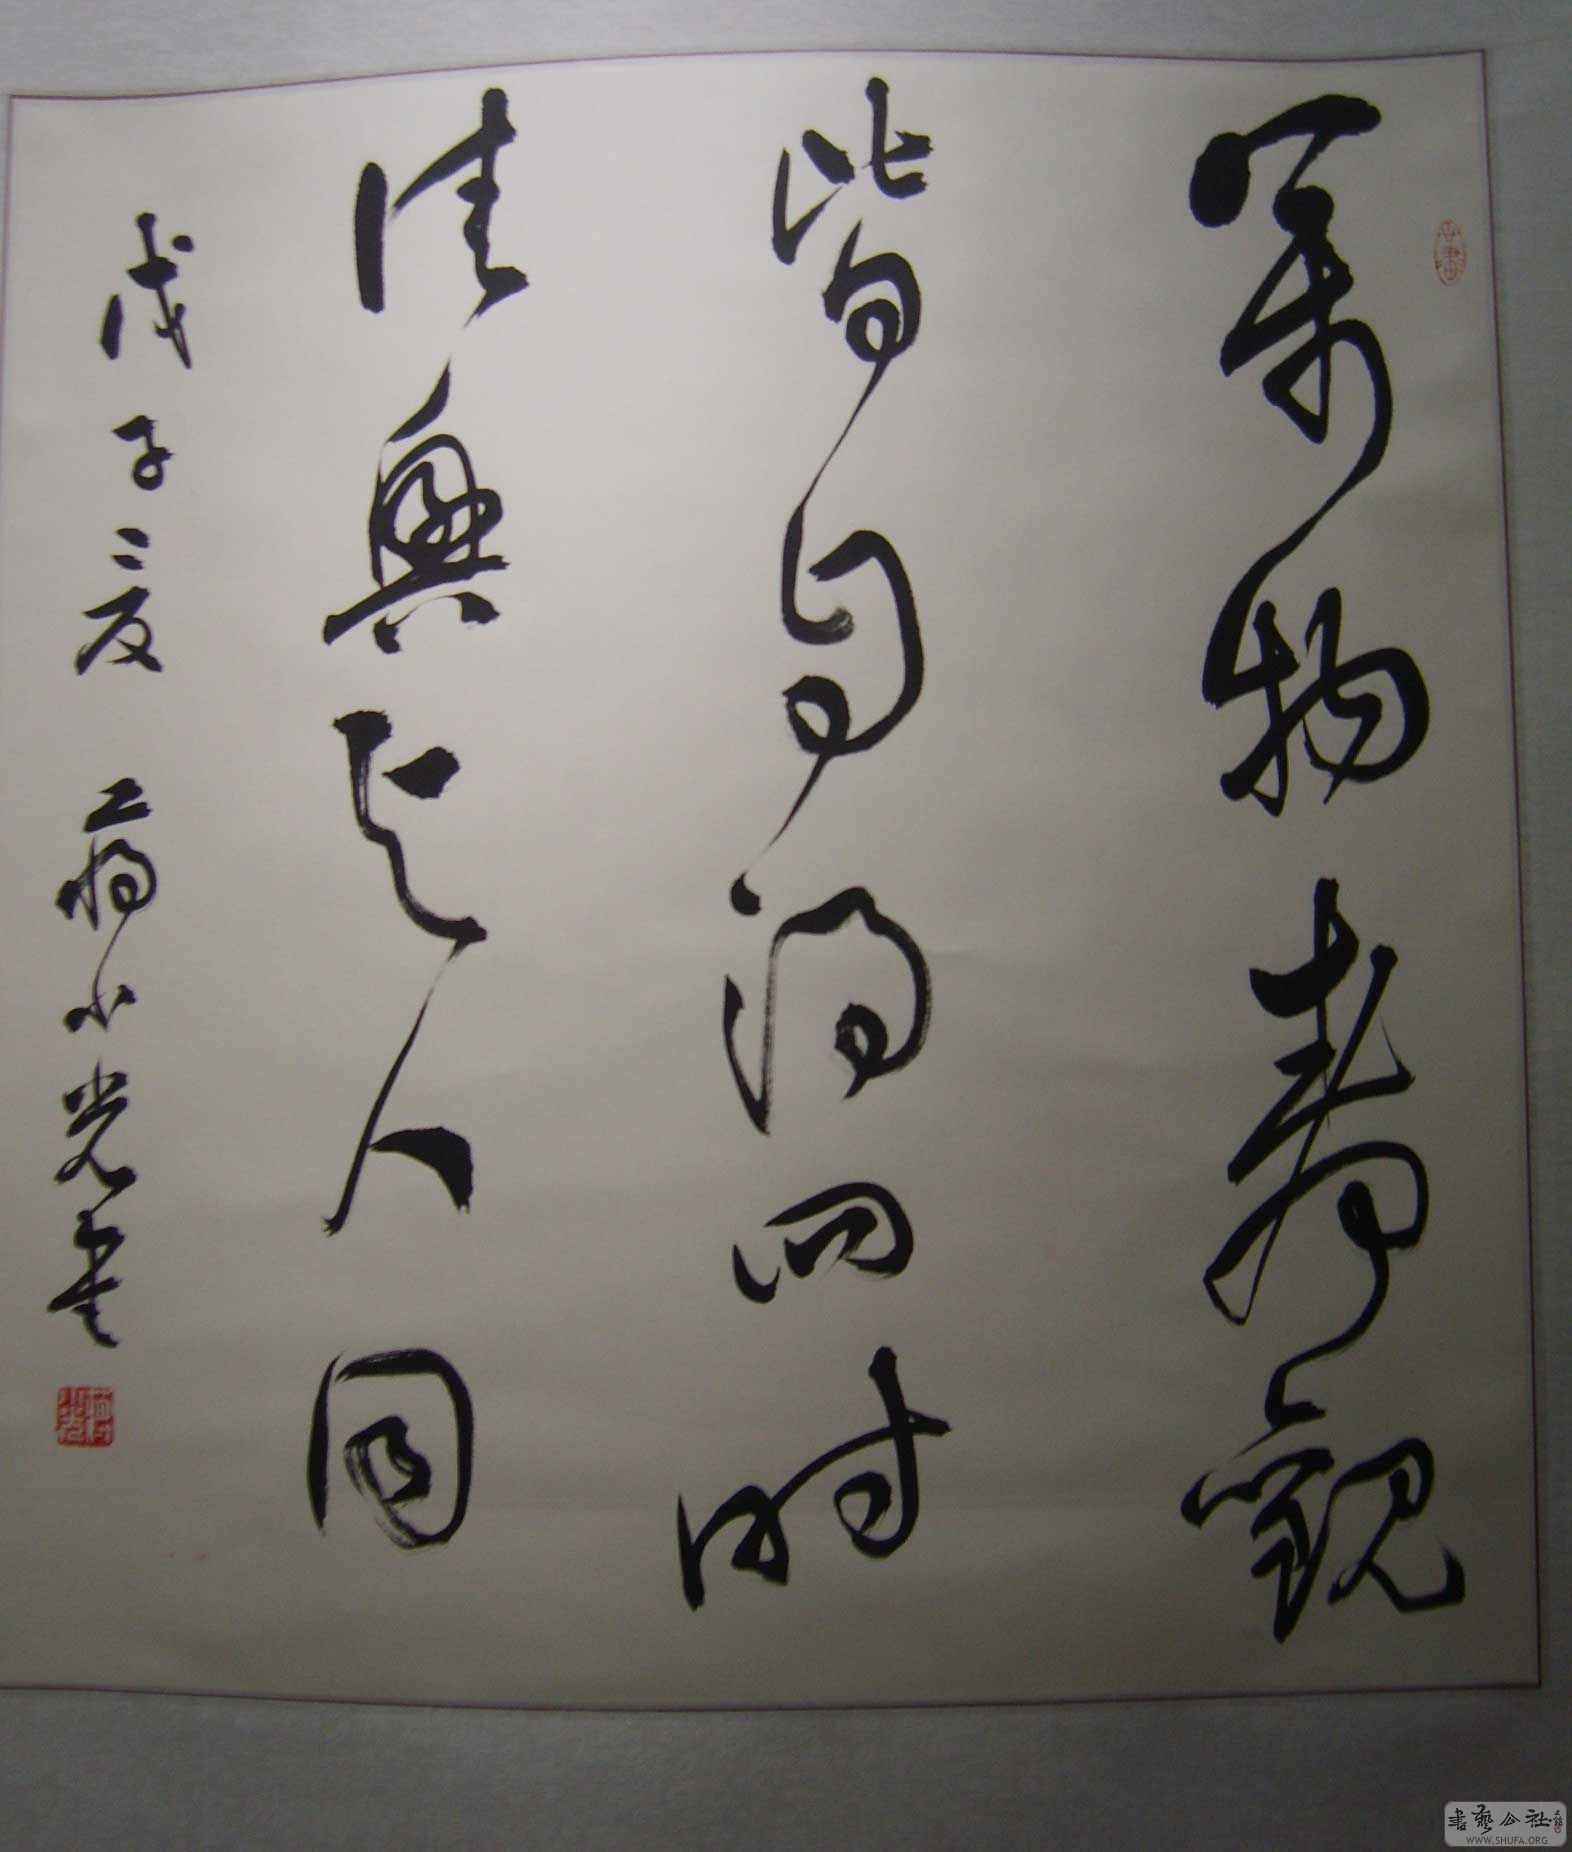 萬物靜觀
皆自得四時
佳興与人同
戊子之夏 蔣小光書
書藝公社
WWW.SHUFA.ORG